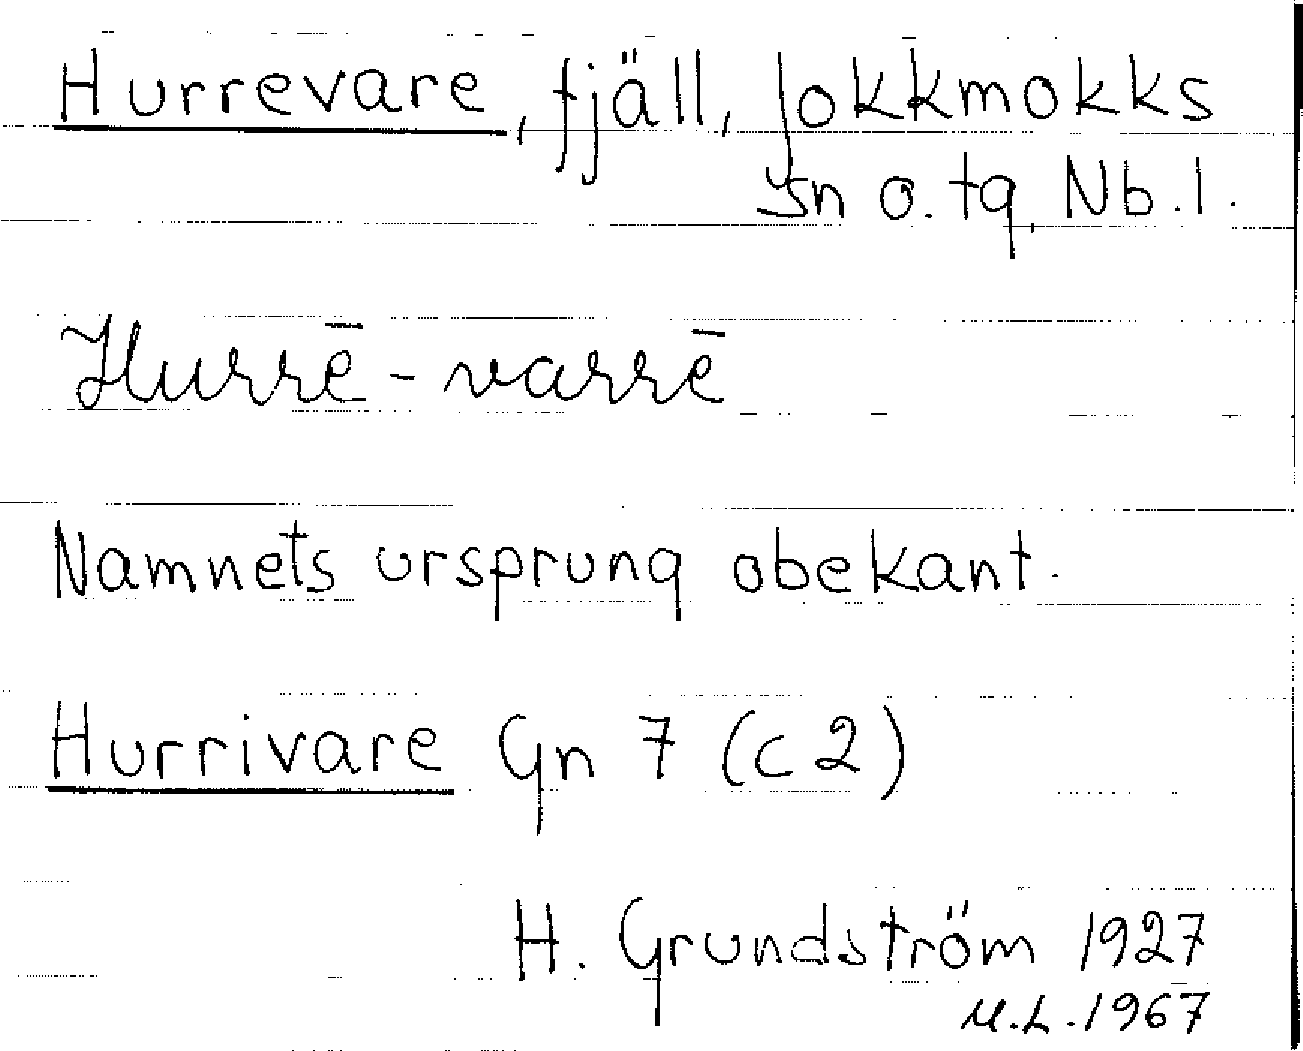 Hurrevare, fjäll, Jokkmokks
sn o. tg, Nb.l.
Hurrē-varrē
Namnets ursprung obekant.
Hurrivare Gn 7 (c2)
H. Grundström 1927
M.L.1967